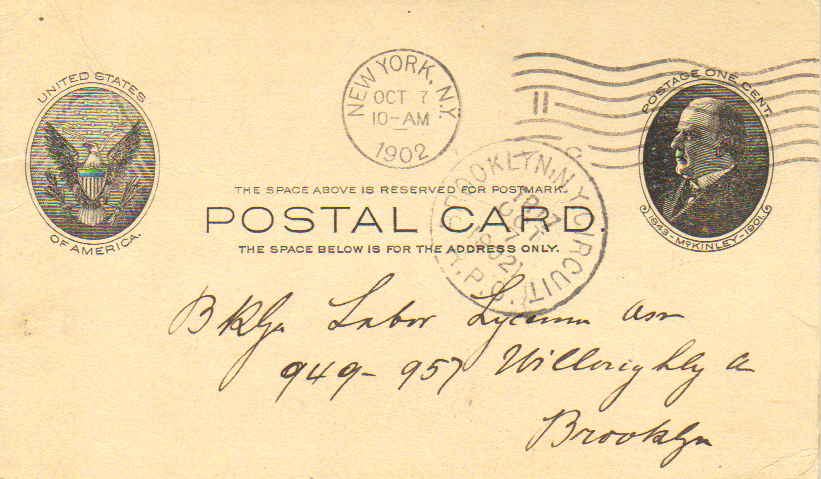 UNITED STATES
OF AMERICA.
NEW YORK, N.Y.
OCT 7
10-AM
1902
POSTAGE ONE CENT.
1843-McKINLEY-1901.
THE SPACE ABOVE IS RESERVED FOR POSTMARK.
POSTAL CARD.
THE SPACE BELOW IS FOR THE ADDRESS ONLY.
BROOKLYN, N.Y. CIRCUIT
OCT
1902
R.P.O.
Bklyn Labor Lyceum Assn
949-957 Willoughby A
Brooklyn